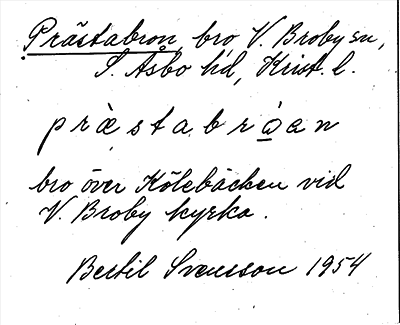 Prästabron, bro, V. Broby sn,
S. Åsbo hd, Krist. l.
p r ὰ s t a b r ò a n
bro över Kölebäcken vid
V. Broby kyrka.
Bertil Svensson 1954